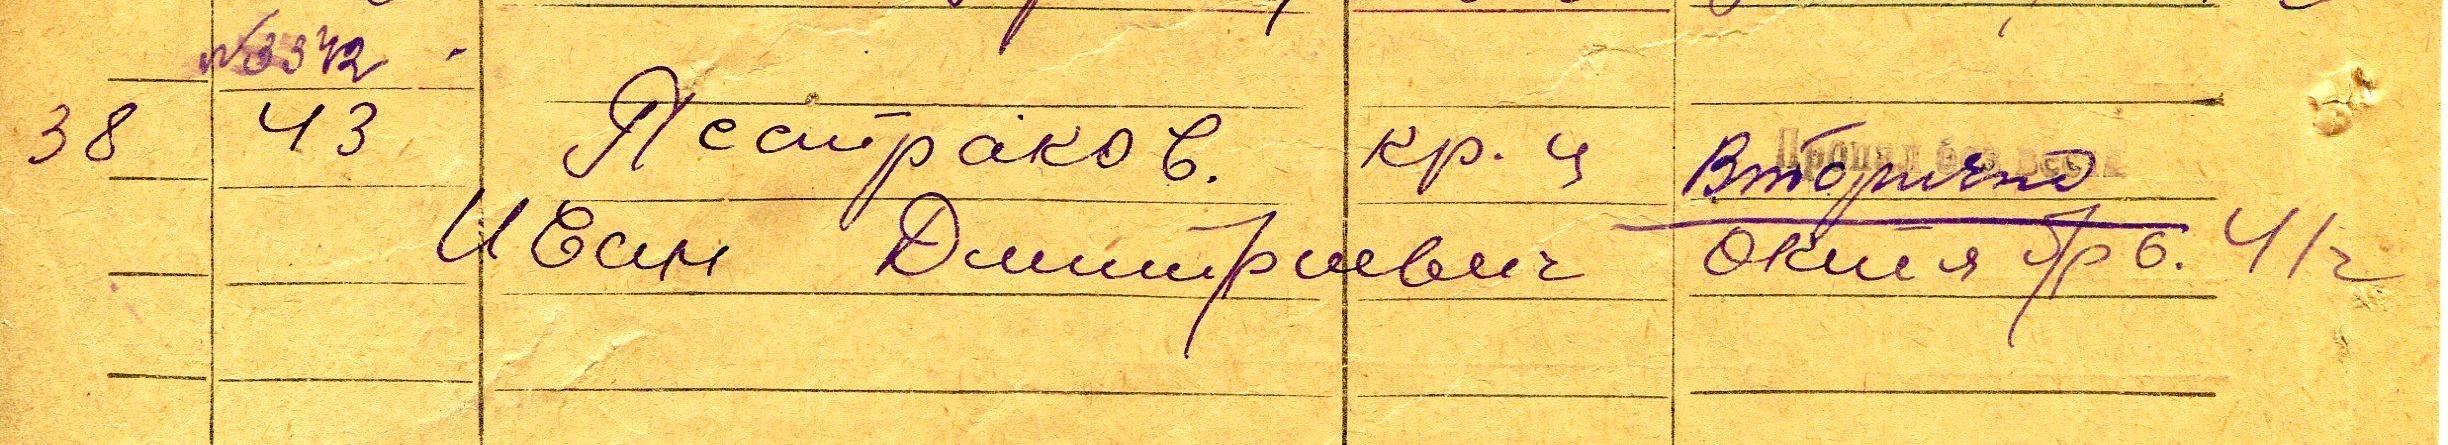 № 3342
38 43 Пестраков. кр. ц Пропал без вести
Вторично
Иван Дмитриевич октябрь. 41 г